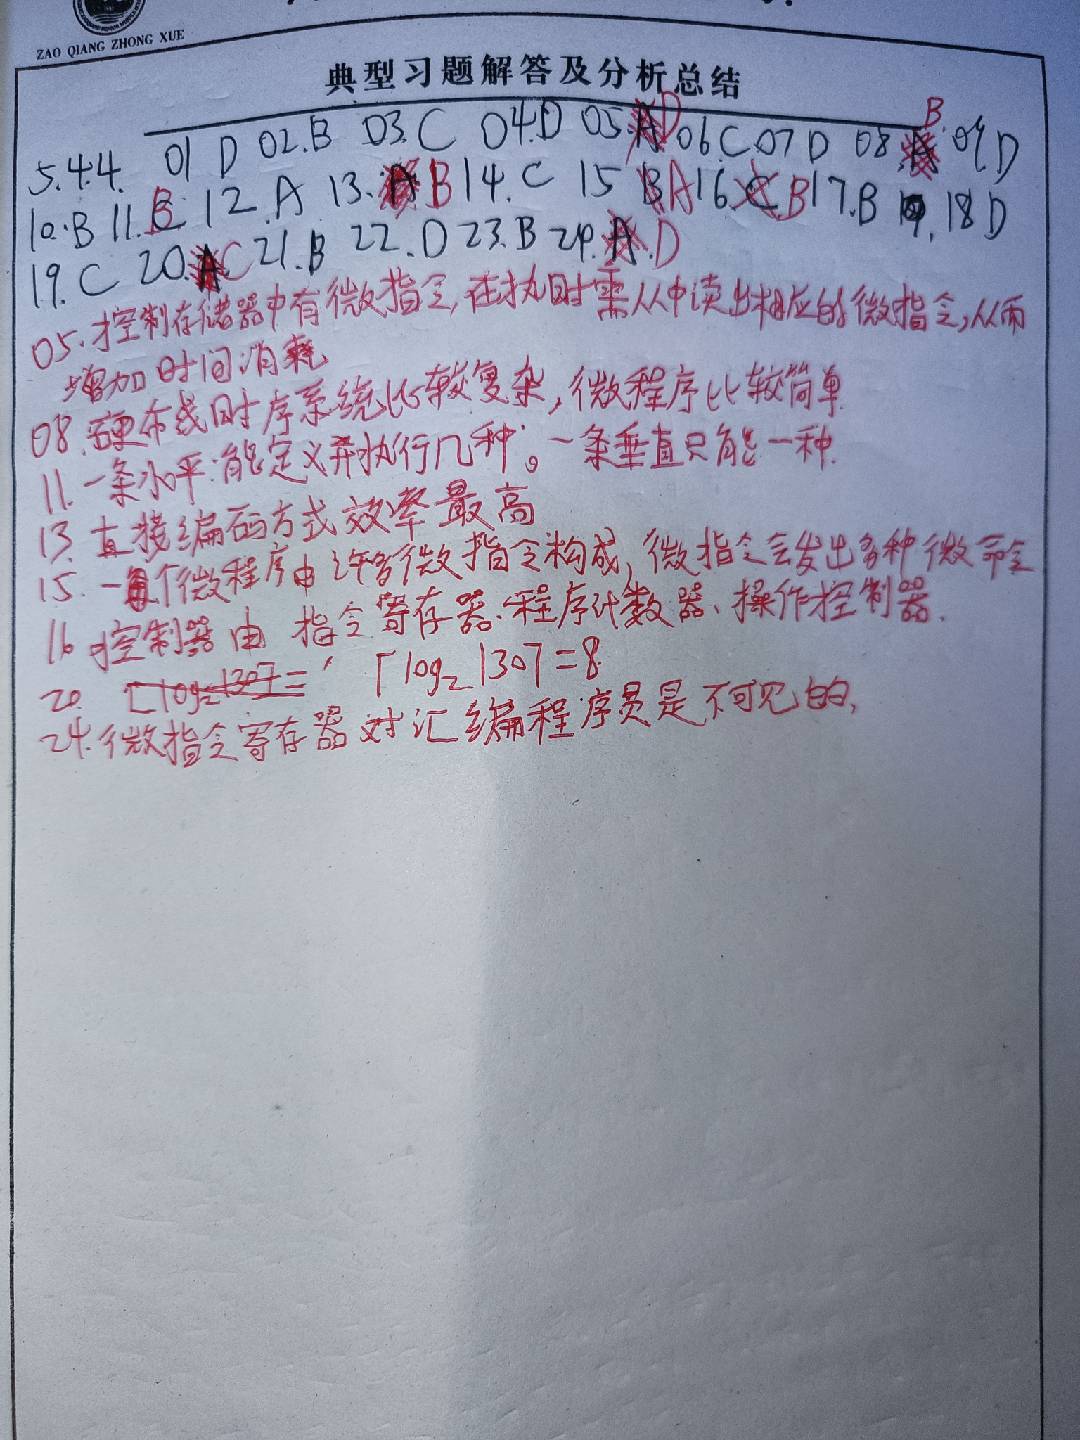 ZAO QIANG ZHONG XUE
典型习题解答及分析总结
5.4.4. 01 D 02.B 03.C 04.D 05.D 06.C 07 D 08.B 09.D
10.B 11.B 12.A 13.B 14.C 15 A 16.B 17.B 18 D
19.C 20.C 21.B 22.D 23.B 24.D
05.控制存储器中有微指令,在执时需从中读出相应的微指令,从而
增加时间消耗
08.硬布线时序系统比较复杂,微程序比较简单
11.一条水平:能定义并执行几种。一条垂直只能一种.
13.直接编码方式效率最高
15.一个微程序由许多微指令构成,微指令会发出多种微命令
16 控制器由 指令寄存器.程序计数器、操作控制器.
20. ⌈log₂130⌉=8
24.微指令寄存器对汇编程序员是不可见的,